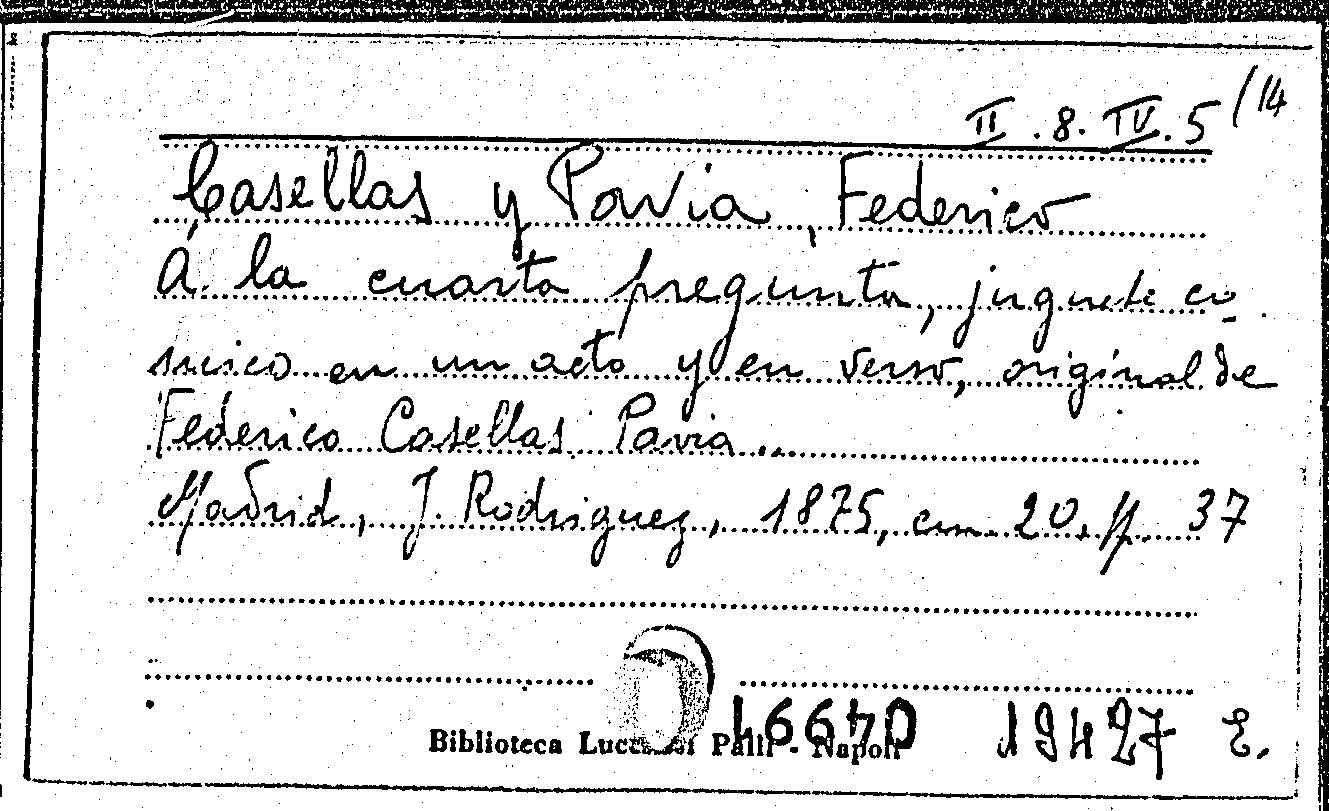 II.8.IV.5/14
Casellas y Pavia, Federico
Á la cuarta pregunta, juguete co-
mico en un acto y en verso, original de
Federico Casellas Pavia...
Madrid, J. Rodriguez, 1875, cm. 20. pp. 37
Biblioteca Lucchesi Palli - Napoli
19427 E.